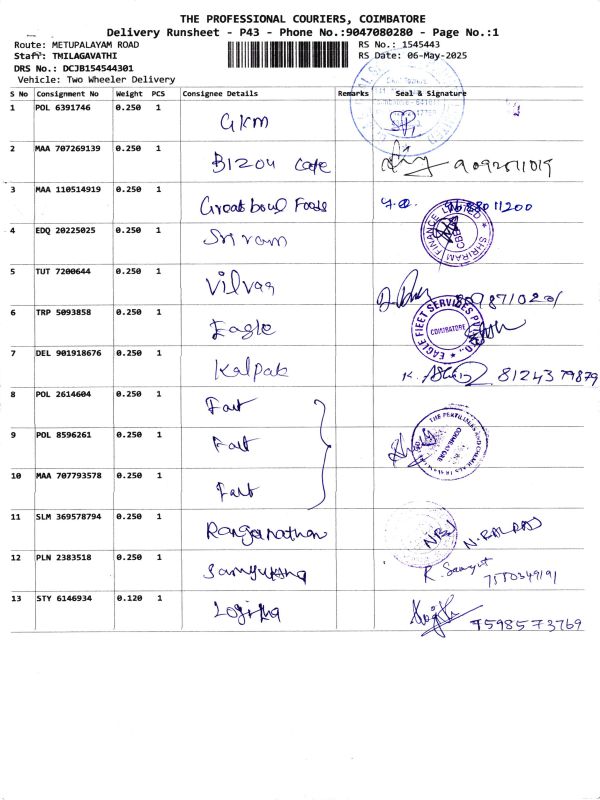 THE PROFESSIONAL COURIERS, COIMBATORE
Delivery Runsheet - P43 - Phone No.:9047080280 - Page No.:1
Route: METUPALAYAM ROAD RS No.: 1545443
Staff: THILAGAVATHI RS Date: 06-May-2025
DRS No.: DCJB154544301
Vehicle: Two Wheeler Delivery
S No Consignment No Weight PCS Consignee Details Remarks Seal & Signature
1 POL 6391746 0.250 1 GKM
2 MAA 707269139 0.250 1 Bizou Cafe
3 MAA 110514919 0.250 1 Greatbowl Foods
4 EDQ 20225025 0.250 1 Sriram SHRIRAM FINANCE LIMITED
5 TUT 7200644 0.250 1 Vilvas
6 TRP 5093858 0.250 1 Eagle EAGLE FLEET SERVICES COIMBATORE
7 DEL 901918676 0.250 1 Kalpak 8124379879
8 POL 2614604 0.250 1 Fact
9 POL 8596261 0.250 1 Fact COIMBATORE
10 MAA 707793578 0.250 1 Fact
11 SLM 369578794 0.250 1 Ranganathan
12 PLN 2383518 0.250 1 Samyuktha
13 STY 6146934 0.120 1 Logitha 9598573769